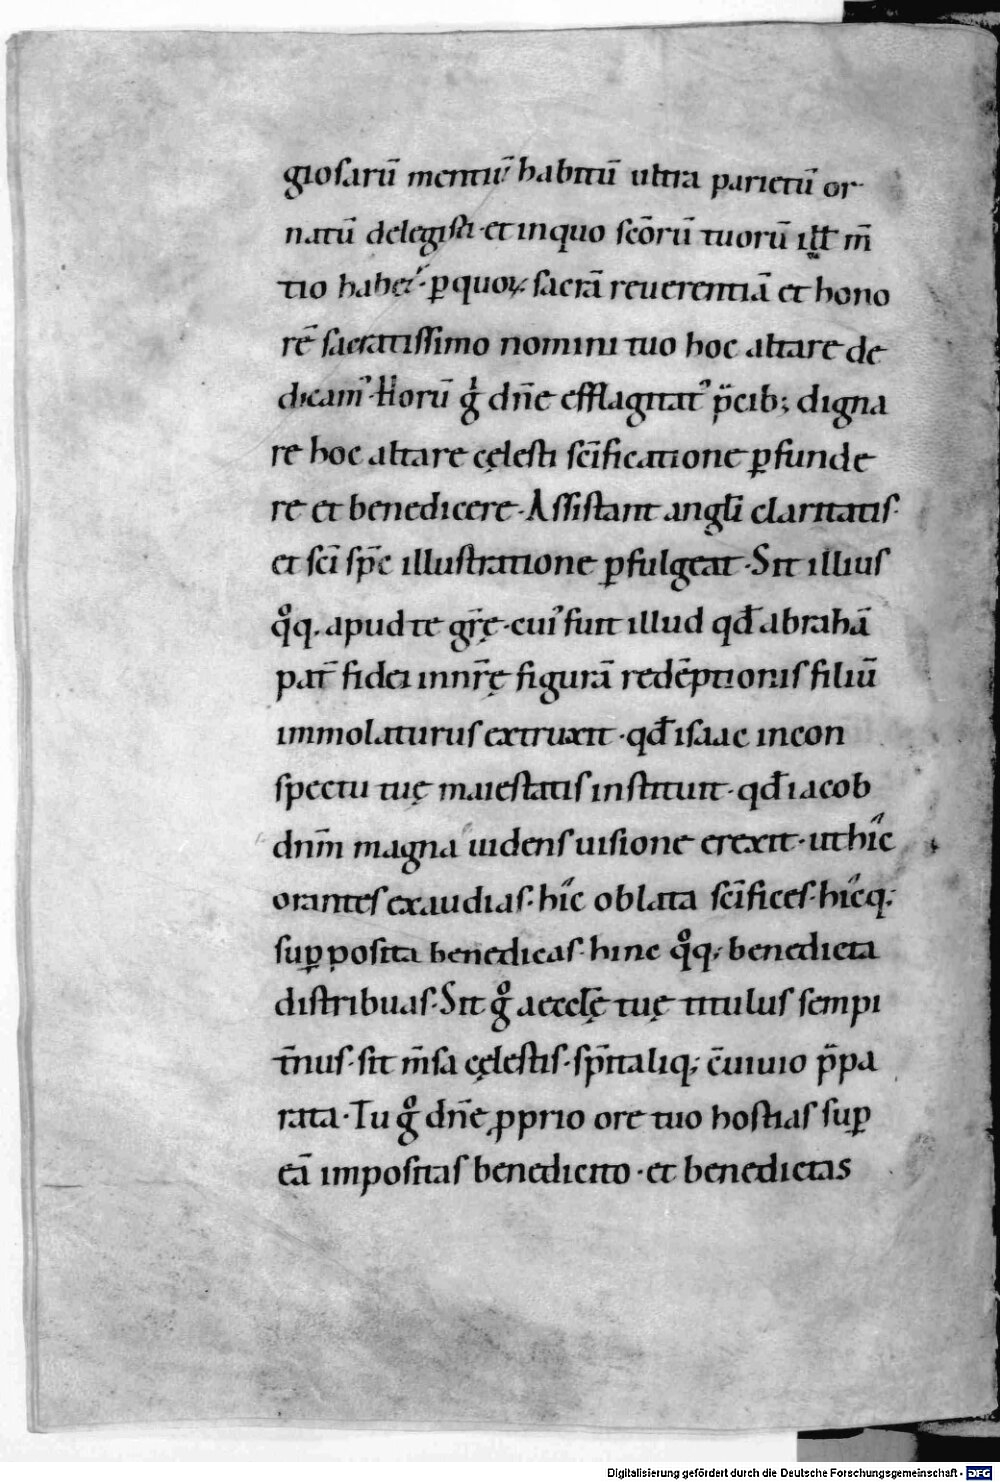 gıoſarū mentiū habitū ultra parietū or
natū delegiſti · et inquo ſcōrū tuorū ill m̄
tio habet᷑ · ꝑ quoꝝ ſacrā reuerentiā et hono
rē ſacratiſſimo nomini tuo hoc altare de
dicam᷒ · Horū g̊ dn̄e efflagitat᷒ p̄cib; digna
re hoc altare cęleſti ſcīficatione ꝑfunde
re et benedicere · Aſſiſtant angl̄i claritatiſ ·
et ſcī ſp̄c illuſtratione ꝑfulgeat · Sit illiuſ
qͦq, apud te gr̄ę · cui᷒ fuit illud qđ abrahā
pat̄ fidei innr̄ę figurā redēptioniſ filiū
immolaturuſ extruxit · qđ iſaac incon
ſpectu tuę maieſtatiſ inſtituit · qđ iacob
dn̄m magna uidenſ uiſione erexit · ut hic
oranteſ exaudiaſ · hic oblata ſcīficeſ · hicq;
ſuꝑpoſita benedicaſ · hinc qͦq; benedicta
diſtribuaſ · Sit g̊ aeccl̄ę tuę tituluſ ſempi
t̄nuſ · ſit m̄ſa cęleſtiſ · ſp̄italiq; c̄uiuio p̄pa
rata · Tu g̊ dn̄e ꝓprio ore tuo hoſtiaſ ſuꝑ
eā impoſitaſ benedicito · et benedictas
Digitalisierung gefördert durch die Deutsche Forschungsgemeinschaft - DFG